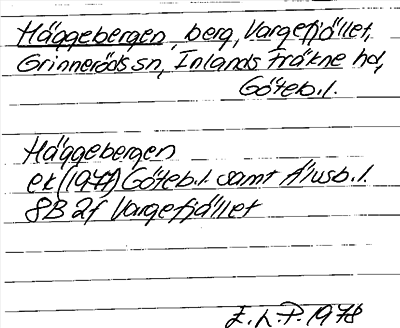 Häggebergen, berg, Vargefjället,
Grinneröds sn, Inlands Fräkne hd,
Göteb.l.
Häggebergen
ek (1977) Göteb.l. samt Älvsb.l.
8B 2f Vargefjället
E.L.P. 1978